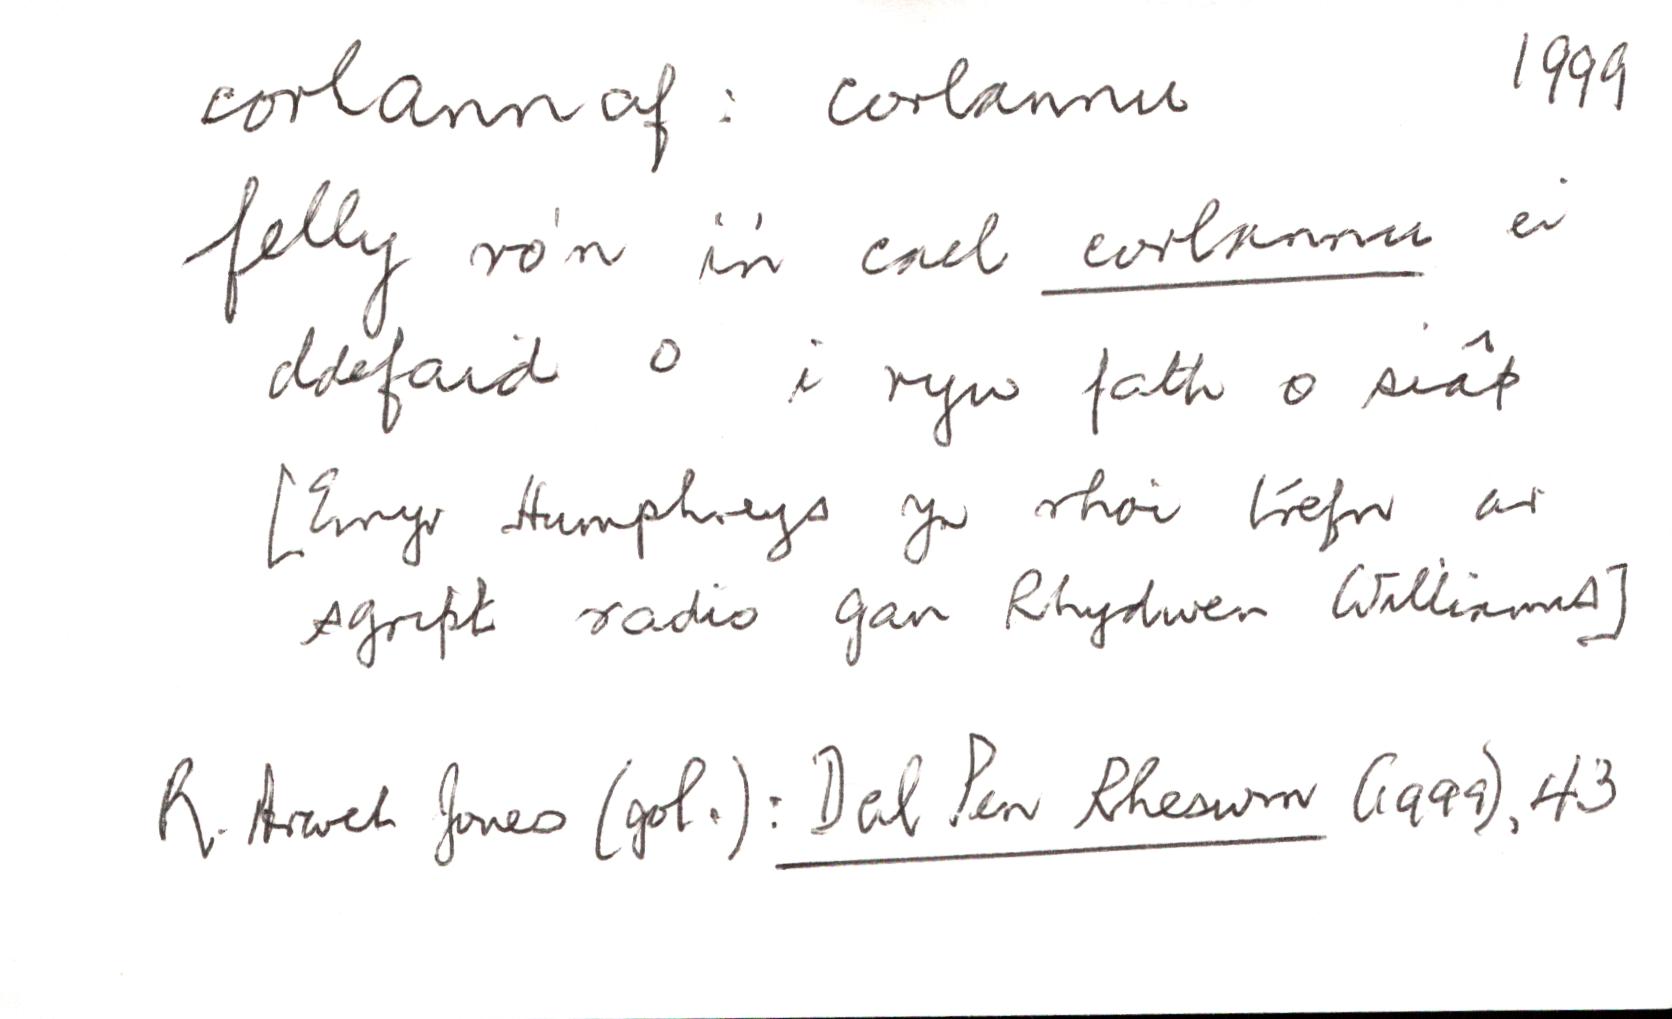 corlannaf: corlannu 1999
felly ro'n i'n cael corlannu ei
ddefaid o i ryw fath o siâp
[Emyr Humphreys yn rhoi trefn ar
sgript radio gan Rhydwen Williams]
R. Arwel Jones (gol.): Dal Pen Rheswm (1999), 43